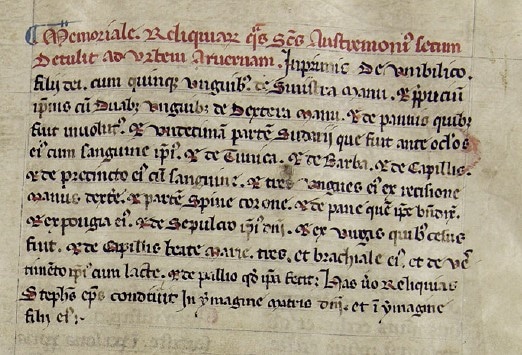 Memoriale Reliquiar qs Scs Austremoni secum
Detulit ad Urbem Aruernam. Inprimis De Umbilico.
filij dei. cum quinque unguibz de Sinistra Manu. & prepucium
ipsius cu Duabz unguibz de Dextera Manu. & de pannis quibz
fuit inuolut. & Undecimam parte Sudarij que fuit ante oclos
ei cum sanguine ipi. & de Tunica. & de Barba. & de Capillis.
& de precincto ei cu sanguine. & tres ungues ei ex recisione
Manus dextre. & parte Spine corone. & de pane que ipe bndix.
& ex spongia ei. & de Sepulcro ipi dni. & ex Uirgis quibz cesus
fuit. & de Capillis beate Marie. tres. et brachiale ei. et de ues
timeto ipi cum lacte. & de pallio qd ipa fecit. Has uo Reliquias
Stephs eps condidit In ymagine matris dni. et i ymagine
filij ei.